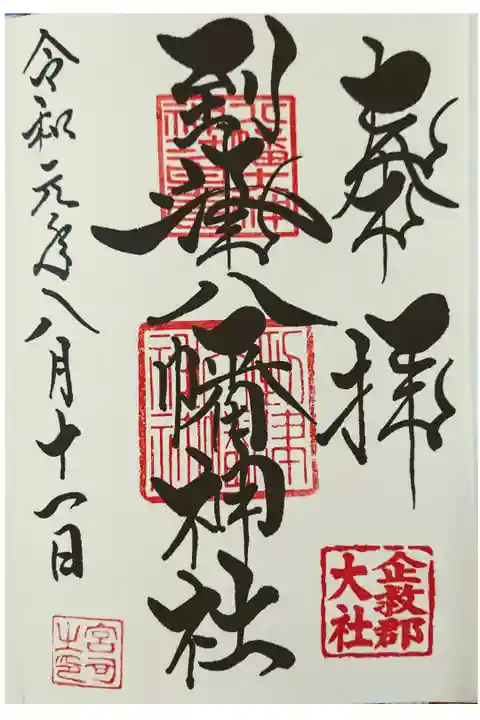 奉拝
企救郡
大社
到津八幡神社
令和元年八月十一日
宮司
之印